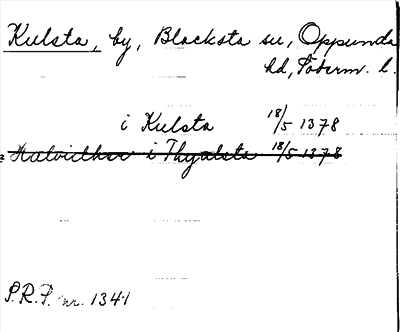 Kulsta, by, Blacksta sn, Oppunda
hd, Söderm. l.
i Kulsta 18/5 1378
i Thyalsta 18/5 1378
P.R.P. nr. 1341